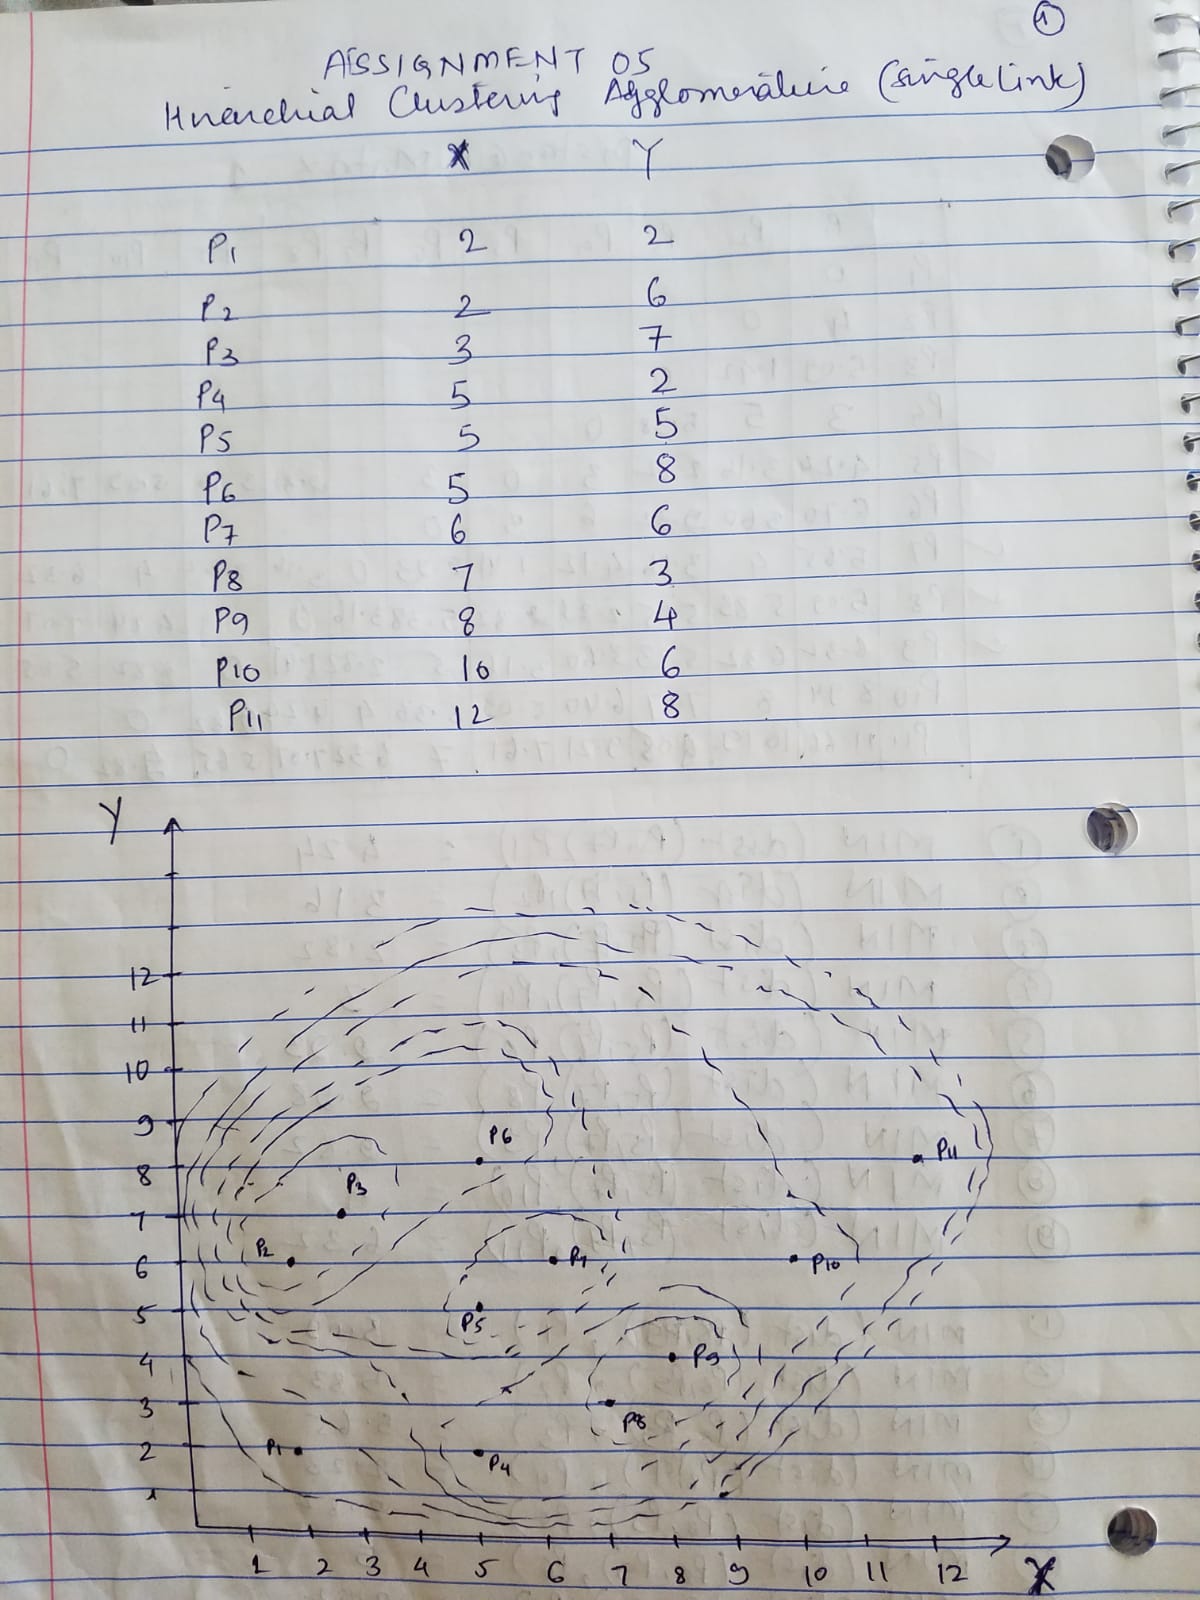 1
ASSIGNMENT 05
Hierarchial Clustering Agglomerative (single Link)
X Y
P1 2 2
P2 2 6
P3 3 7
P4 5 2
P5 5 5
P6 5 8
P7 6 6
P8 7 3
P9 8 4
P10 10 6
P11 12 8
Y
12
11
10
9
P6
P11
8
P3
7
P2
P7
P10
6
5
P5
4
P9
3
P8
2
P1
P4
1
1 2 3 4 5 6 7 8 9 10 11 12 X